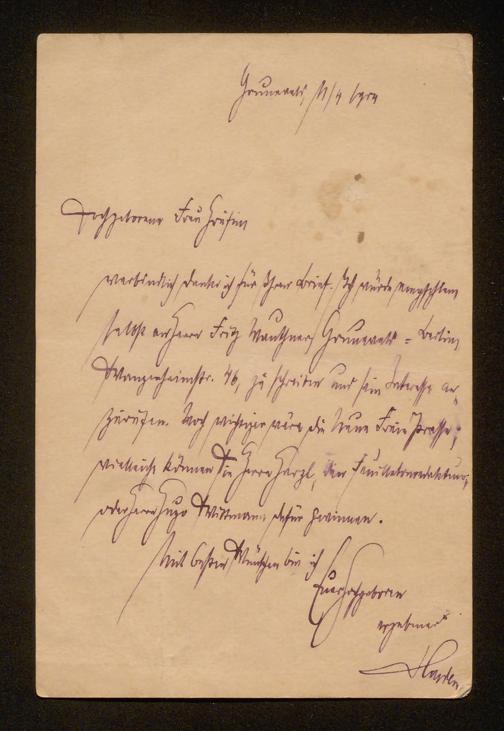 Grunewald, 11/4 1904
Hochgeborene Frau Gräfin
verbindlich danke ich für Ihren Brief. Ich würde empfehlen
selbst an Herrn Fritz Mauthner, Grunewald-Berlin,
Wangenheimstr. 46, zu schreiben und sein Interesse an-
zurufen. Noch wichtiger wäre die Neue Freie Presse;
vielleicht können Sie Herrn Herzl, den Feuilletonredakteur,
oder Herrn Hugo Wittmann dafür gewinnen.
Mit besten Wünschen bin ich
Euer Hochgeboren
ergebener
Harden